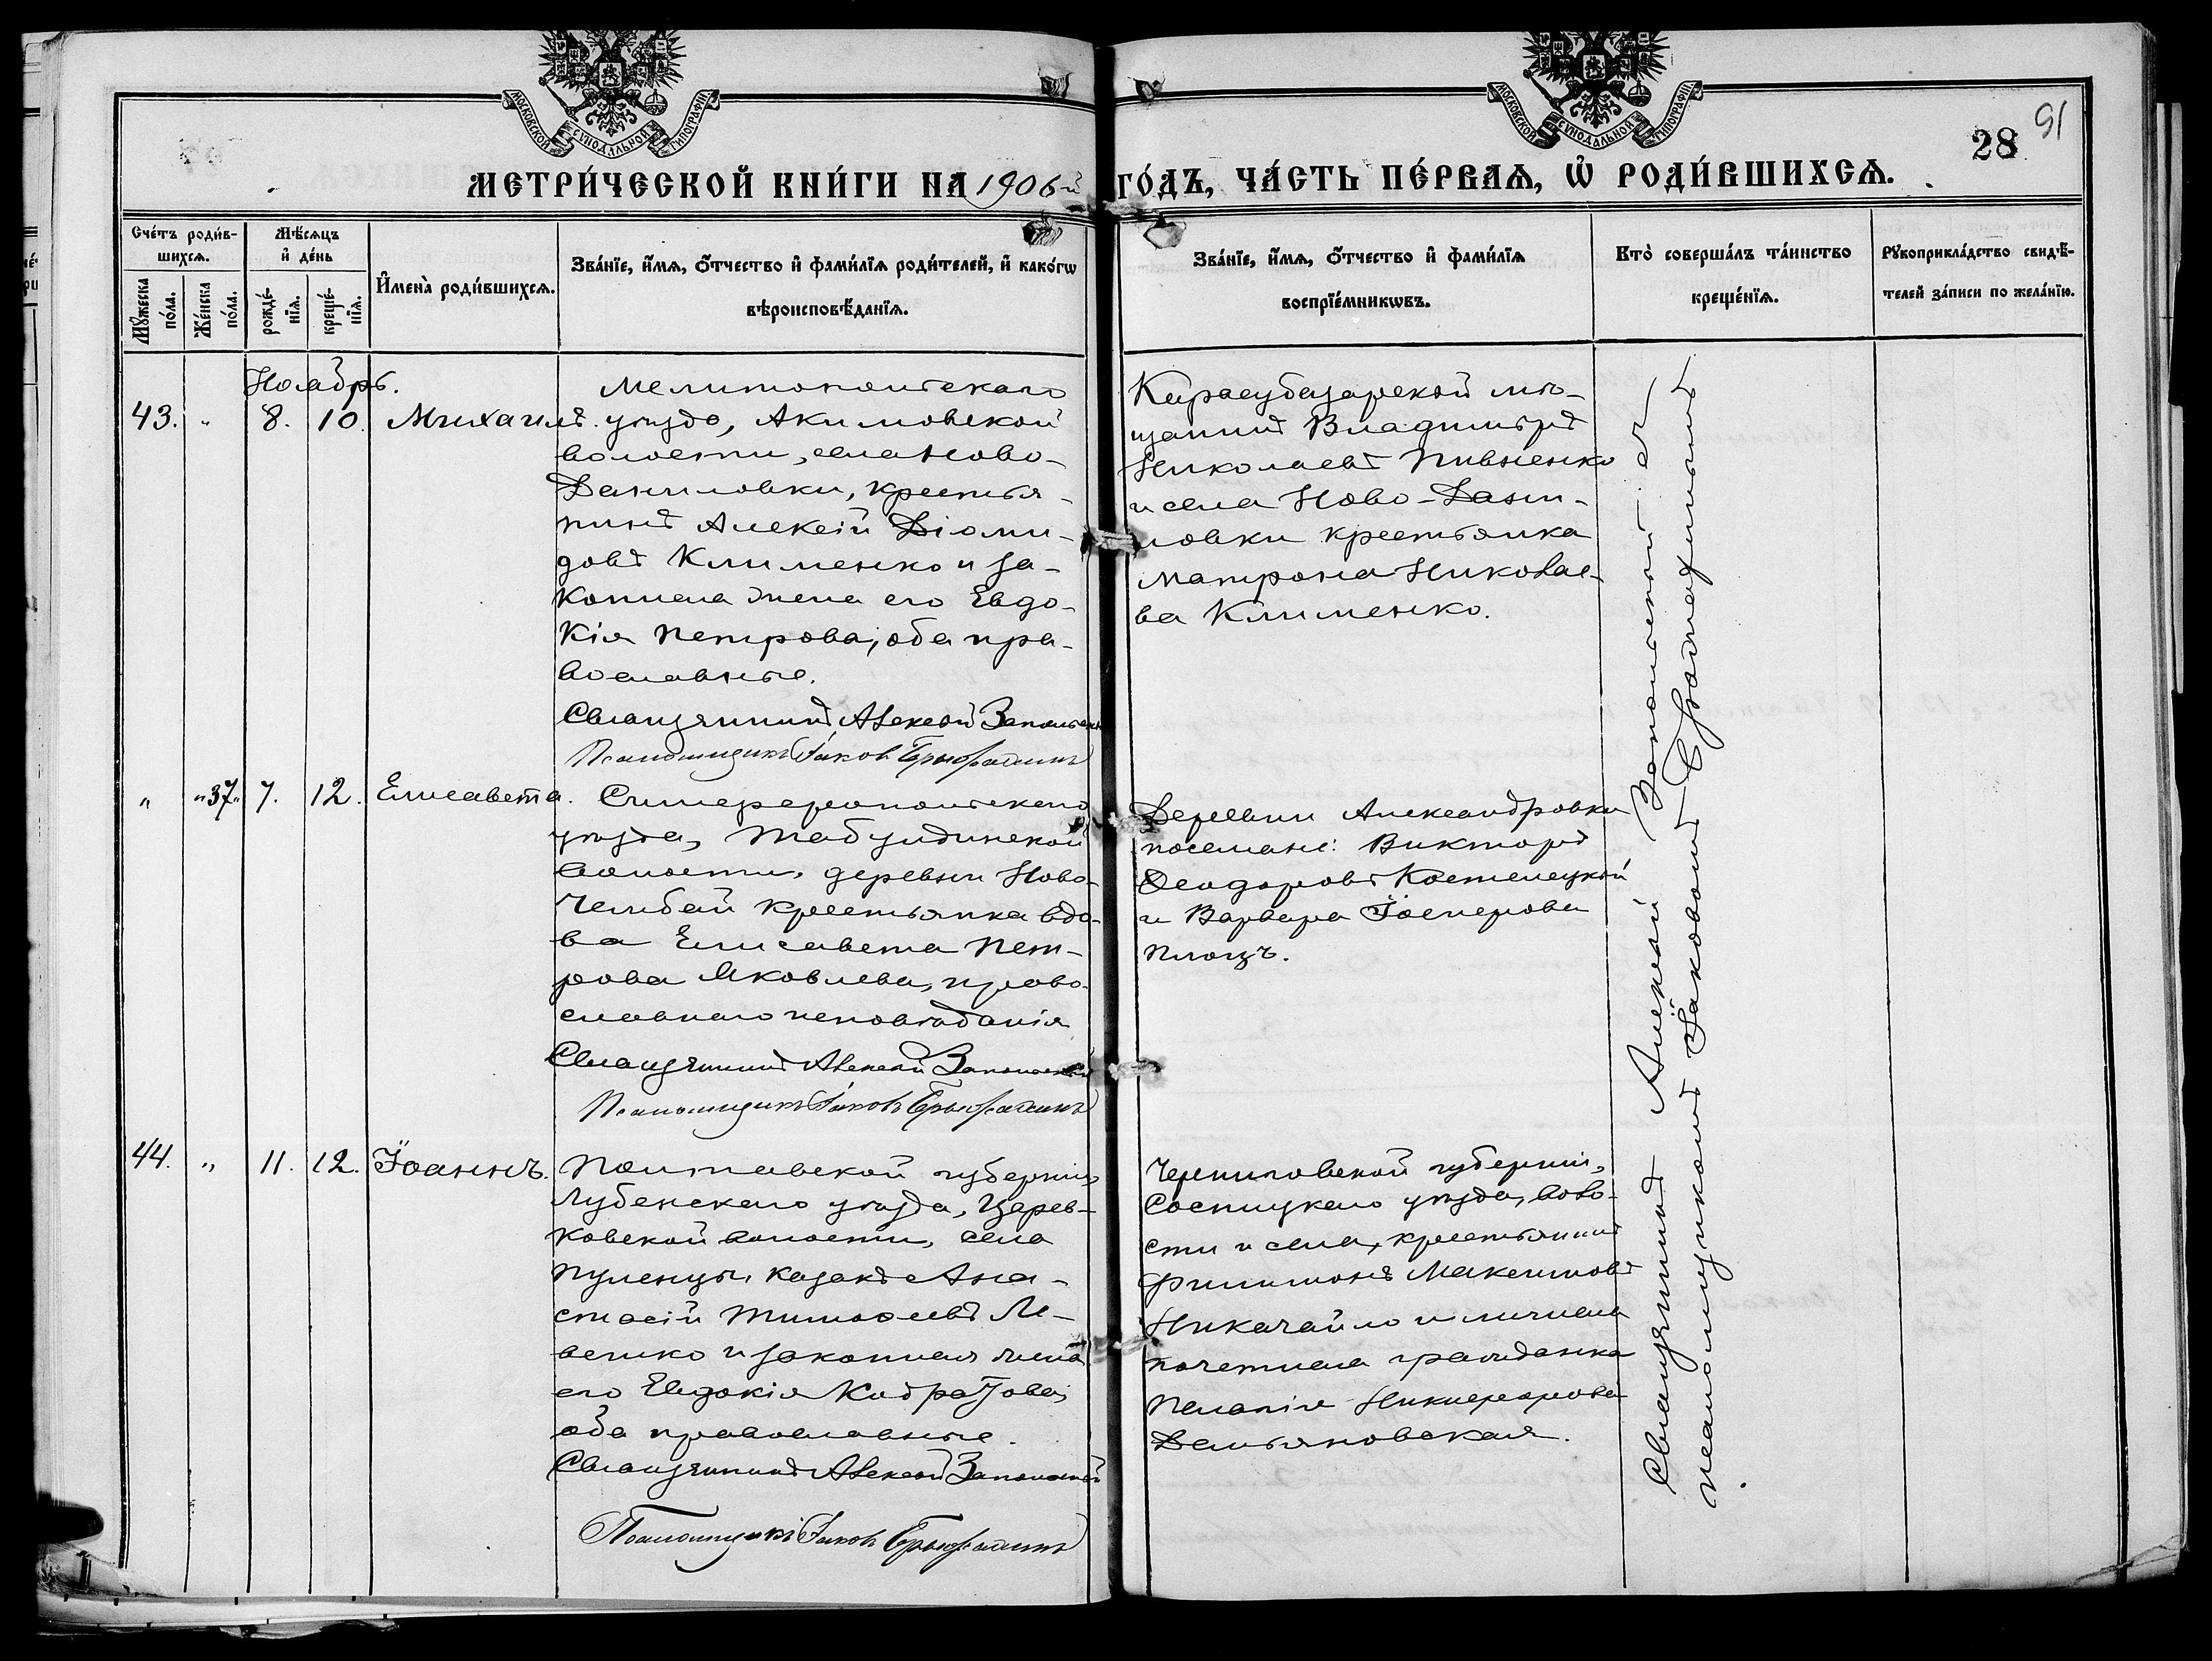 МОСКОВСКОЙ СѴНОДАЛЬНОЙ ТИПОГРАФІИ
МОСКОВСКОЙ СѴНОДАЛЬНОЙ ТИПОГРАФІИ
28 91
МЕТРИ́ЧЕСКОЙ КНИ́ГИ НА 1906-й ГО́ДЪ, ЧА́СТЬ ПЕ́РВАѦ, Ѡ҆ РОДИ́ВШИХСѦ.
Сче́тъ роди́в-
шихсѧ.
Мꙋ́жеска по́ла.
Же́нска по́ла.
Мѣ́сѧцъ
и҆ де́нь
рожде́-
нїѧ.
креще́-
нїѧ.
И҆мена̀ роди́вшихсѧ.
Зва́нїе, и҆́мѧ, ѻ҆́тчество и҆ фами́лїѧ роди́телей, и҆ како́гѡ
вѣроисповѣ́данїѧ.
Зва́нїе, и҆́мѧ, ѻ҆́тчество и҆ фами́лїѧ
воспрїе́мникѡвъ.
Кто̀ соверша́лъ та́инство
креще́нїѧ.
Рꙋкоприкла́дство свидѣ́-
телей за́писи по жела́нїю.
Ноябрь.
43. " 8. 10. Михаилъ.
Мелитопольскаго
уѣзда, Акимовской
волости, села Ново-
Даниловки, крестья-
нинъ Алексій Діоми-
довъ Клименко и за-
конная жена его Евдо-
кія Петрова; оба пра-
вославные.
Священникъ Алексѣй Запольскій
Псаломщикъ Іаковъ
Карасубазарской мѣ-
щанинъ Владиміръ
Николаевъ Пивненко
и села Ново-Дани-
ловки крестьянка
Матрона Николае-
ва Клименко.
" "37" 7. 12. Елисавета.
Симферопольскаго
уѣзда, Табулдинской
волости, деревни Ново-
Челебай крестьянка вдо-
ва Елисавета Пет-
рова Яковлева, право-
славнаго исповѣданія
Священникъ Алексѣй Запольскій
Псаломщикъ Іаковъ
Деревни Александровки
поселяне: Викторъ
Ѳеодоровъ Костелецкій
и Варвара Іосифова
Плоцъ.
44. " 11. 12. Іоаннъ.
Полтавской губерніи
Лубенскаго уѣзда, Церев-
ковской волости, села
Пулинцы, казакъ Ана-
стасій Тимоѳеевъ Ле-
венко и законная жена
его Евдокія Кодратова;
оба православные.
Священникъ Алексѣй Запольскій
Псаломщикъ Іаковъ
Черниговской губерніи,
Сосницкаго уѣзда, воло-
сти и села, крестьянинъ
Филимонъ Максимовъ
Никачайло и личная
почетная гражданка
Пелагія Никифорова
Демьяновская.
Священникъ Алексѣй Запольскій съ
псаломщикомъ Іаковомъ